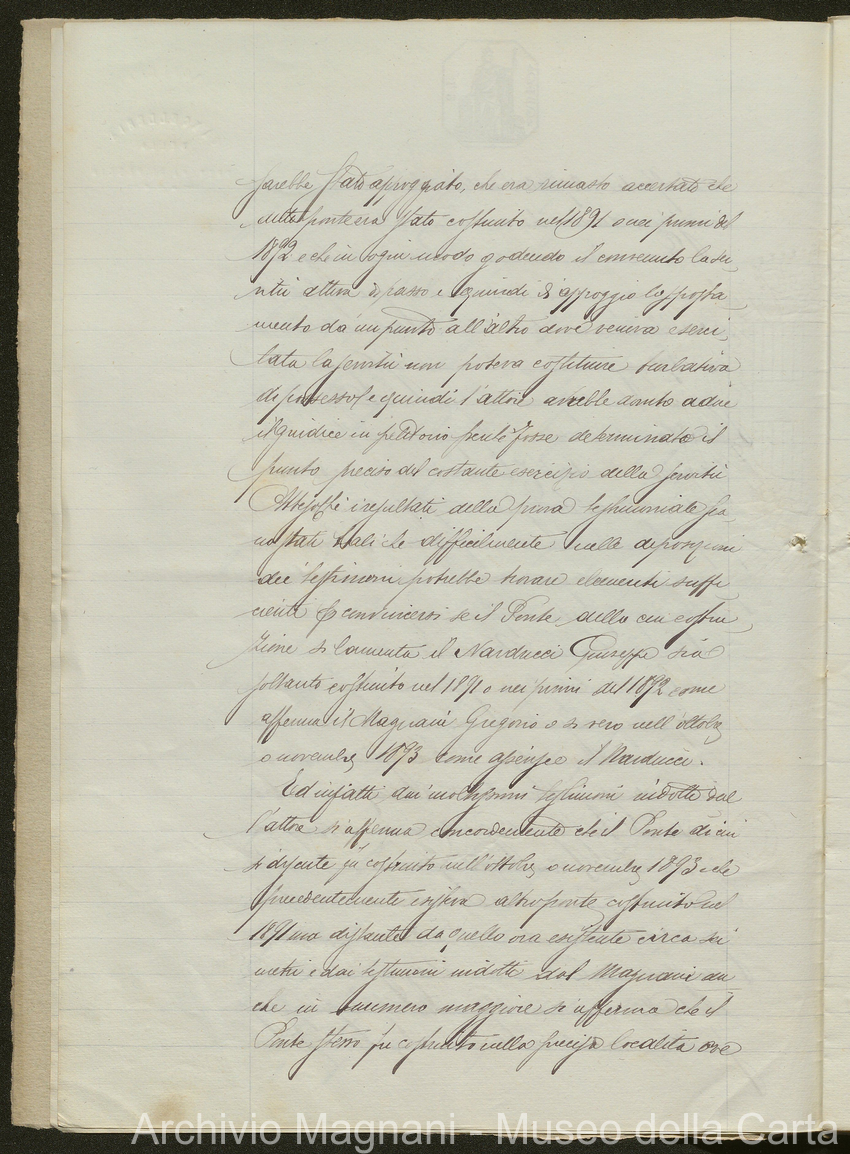 sarebbe stato appoggiato, che era rimasto accertato che
detto ponte era stato costruito nel 1891 o nei primi del
1892 e che in ogni modo godendo il convenuto la ser
vitù attiva di passo e quindi di appoggio lo sposta
mento da un punto all'altro dove veniva eserci
tata la servitù non poteva costituire turbativa
di possesso e quindi l'attore avrebbe dovuto adire
il Giudice in petitorio perché fosse determinato il
punto preciso del costante esercizio della servitù
Attesoché i resultati della prova testimoniale so
no stati tali che difficilmente nelle deposizioni
dei testimoni potrebbe trovare elementi suffi
cienti per convincersi se il Ponte, della cui costru
zione si lamenta il Narducci Giuseppe sia
soltanto costruito nel 1891 o nei primi del 1892 come
afferma il Magnani Gregorio o si vero nell'ottobre
o novembre 1893 come asserisce il Narducci.
Ed infatti dai moltissimi testimoni indotti dal
l'attore si afferma concordemente che il Ponte di cui
si discute fu costruito nell'ottobre o novembre 1893 e che
precedentemente esisteva altro ponte costruito nel
1891 ma distante da quello ora esistente circa sei
metri e dai testimoni indotti dal Magnani an
che in numero maggiore si afferma che il
Ponte stesso fu costruito nella precisa località ove
Archivio Magnani - Museo della Carta